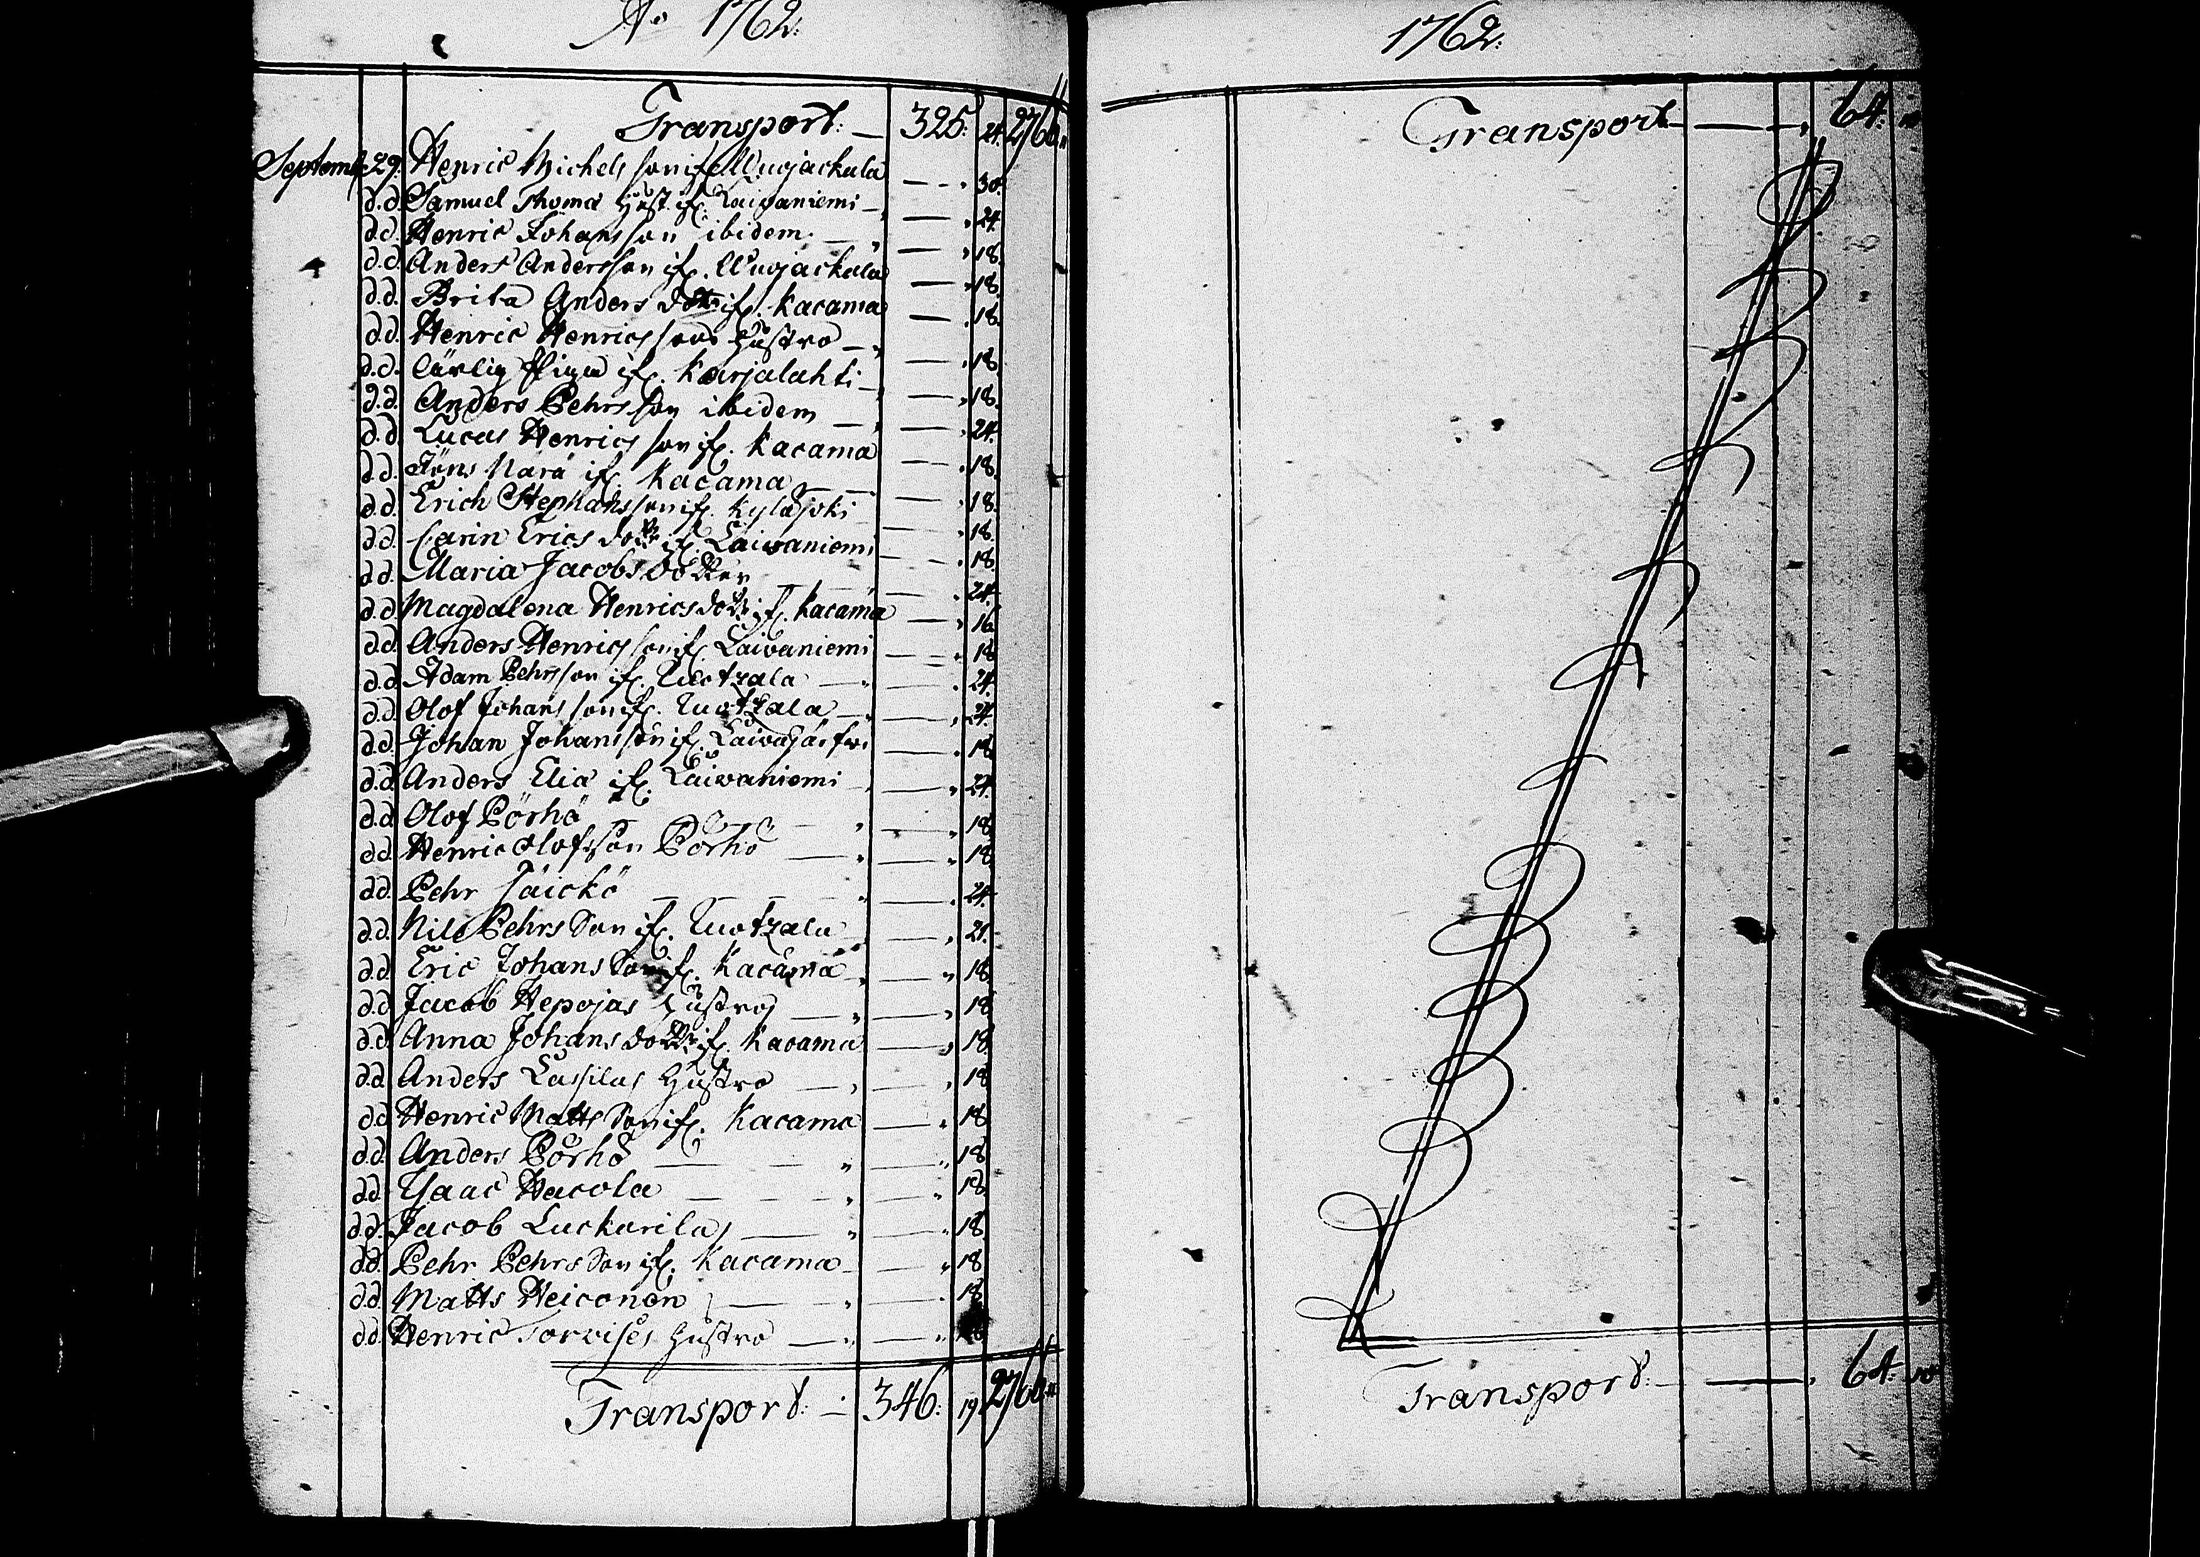 Ao 1762:
Transport: — 325: 24. 2760
Septemb. 29. Henric Michelsson if. Wuojackala — 30.
d.d. Samuel Thoma Hust. if. Laivaniemi — 24.
d.d. Henric Johansson ibidem — 18.
d.d. Anders Andersson if. Wuojackala — 18.
d.d. Brita Anders dotr if. Kacama — 18.
d.d. Henric Henricssons Hustro —
d.d. Lärlig Piga if. Karjalahti — 18.
d.d. Anders Pehrsson ibidem — 18.
d.d. Lucas Henricsson if. Kacama — 24.
d.d. Jöns Nara if. Kacama — 18.
d.d. Erich Stephansson if. Kyläjoki — 18.
d.d. Carin Erics dottr if. Laivaniemi — 18.
d.d. Maria Jacobs dotter — 18.
d.d. Magdalena Henrics dottr if. Kacama — 24.
d.d. Anders Henricsson if. Laivaniemi — 16.
d.d. Adam Pehrsson if. Ruotzala — 18
d.d. Olof Johansson if. Ruotzala — 24.
d.d. Johan Johansson if. Laivajärfwi — 24.
d.d. Anders Elia if. Laivaniemi — 18
d.d. Olof Pörhö — 24.
d.d. Henric Olofsson Pörhö — 18
d.d. Pehr Jäickö — 18
d.d. Nils Pehrsson if. Ruotzala — 24.
d.d. Eric Johansson if. Kacama — 21.
d.d. Jacob Hepojas Hustro — 18
d.d. Anna Johans dottr if. Kacama — 18
d.d. Anders Lassilas Hustro — 18
d.d. Henric Matts Son if. Kacama — 18
d.d. Anders Pörhö — 18
d.d. Isaac Hacola — 18
d.d. Jacob Luckarila — 18
d.d. Pehr Pehrs Son if. Kacama — 18
d.d. Matts Heiconen — 18
d.d. Henric Torvises Hustro — 18
Transport: — 346: 19. 2760
1762:
Transport — 64:
Transport: — 64: 10